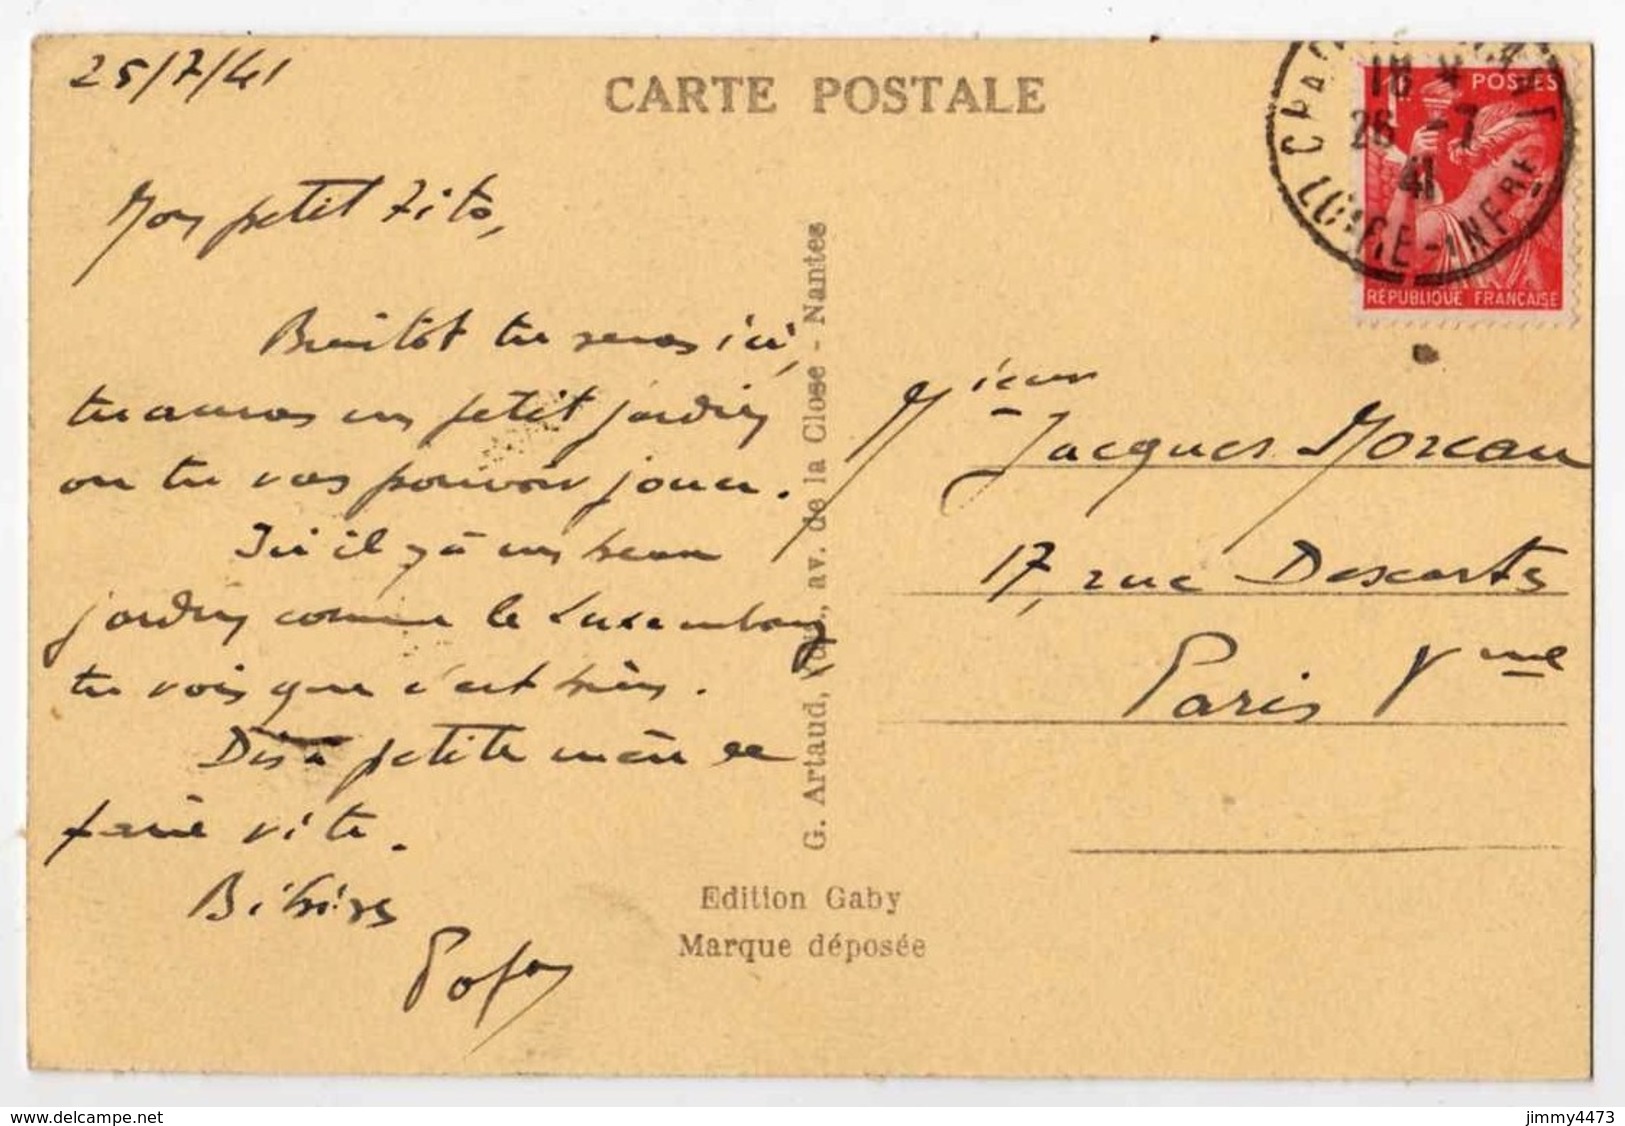 25/7/41
CARTE POSTALE
Mon petit Zito,
Bientôt tu seras ici,
tu auras un petit jardin
ou tu vas pouvoir jouer.
Ici il y a un beau
jardin comme le Luxembourg
tu vois que c'est bien.
Dis a petite mère de
faire vite.
Bibises
G. Artaud, av. de la Close - Nantes
Edition Gaby
Marque déposée
18
26 -7
41
LOIRE-INFRE
POSTES
1F
RÉPUBLIQUE FRANÇAISE
Msieur
Jacques Moreau
17, rue Descartes
Paris Vme
delcampe.net
jimmy4473